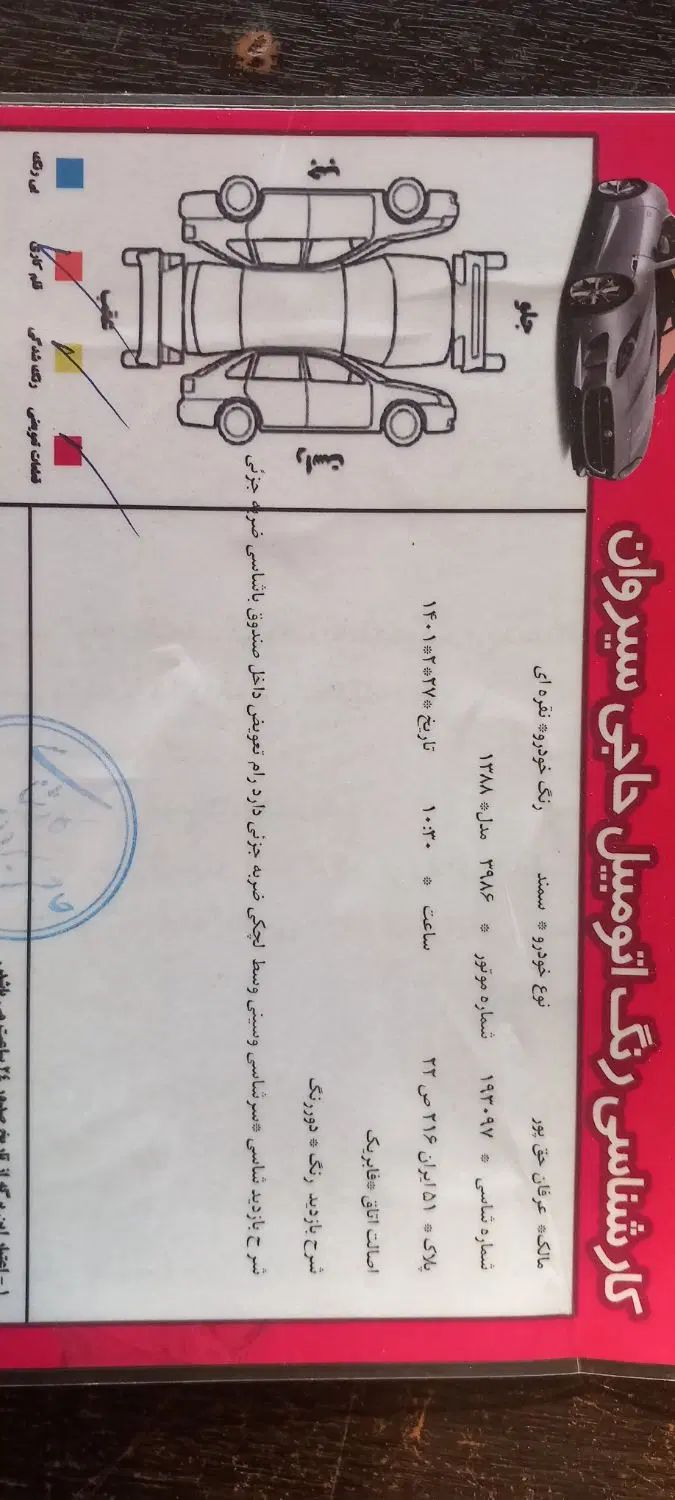 کارشناسی رنگ اتومبیل حاجی سیروان
مالک* عرفان حق پور نوع خودرو * سمند رنگ خودرو* نقره ای
شماره شاسی * ۱۹۳۰۹۷ شماره موتور * ۳۹۸۶ مدل* ۱۳۸۸
پلاک * ۵۱ ایران ۲۱۶ ص ۲۲ ساعت * ۱۰:۳۰ تاریخ *۲۷*۲*۱۴۰۱
اصالت اتاق *فابریک
شرح بازدید رنگ * دوررنگ
شرح بازدید شاسی *سرشاسی وسینی وسط لچکی ضربه جزئی دارد رام تعویض داخل صندوق باشاسی ضربه جزئی
جلو
عقب
چپ
راست
بی رنگ
قلم کاری
رنگ شدگی
قطعات تعویضی
۱- اعتبار این برگه از تاریخ صدور ۲٤ ساعت می باشد.